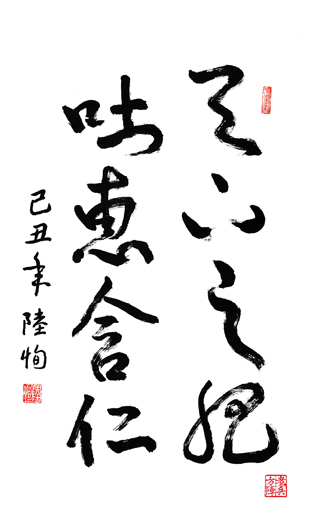 天下之肥
吐惠含仁
己丑年 陸恂